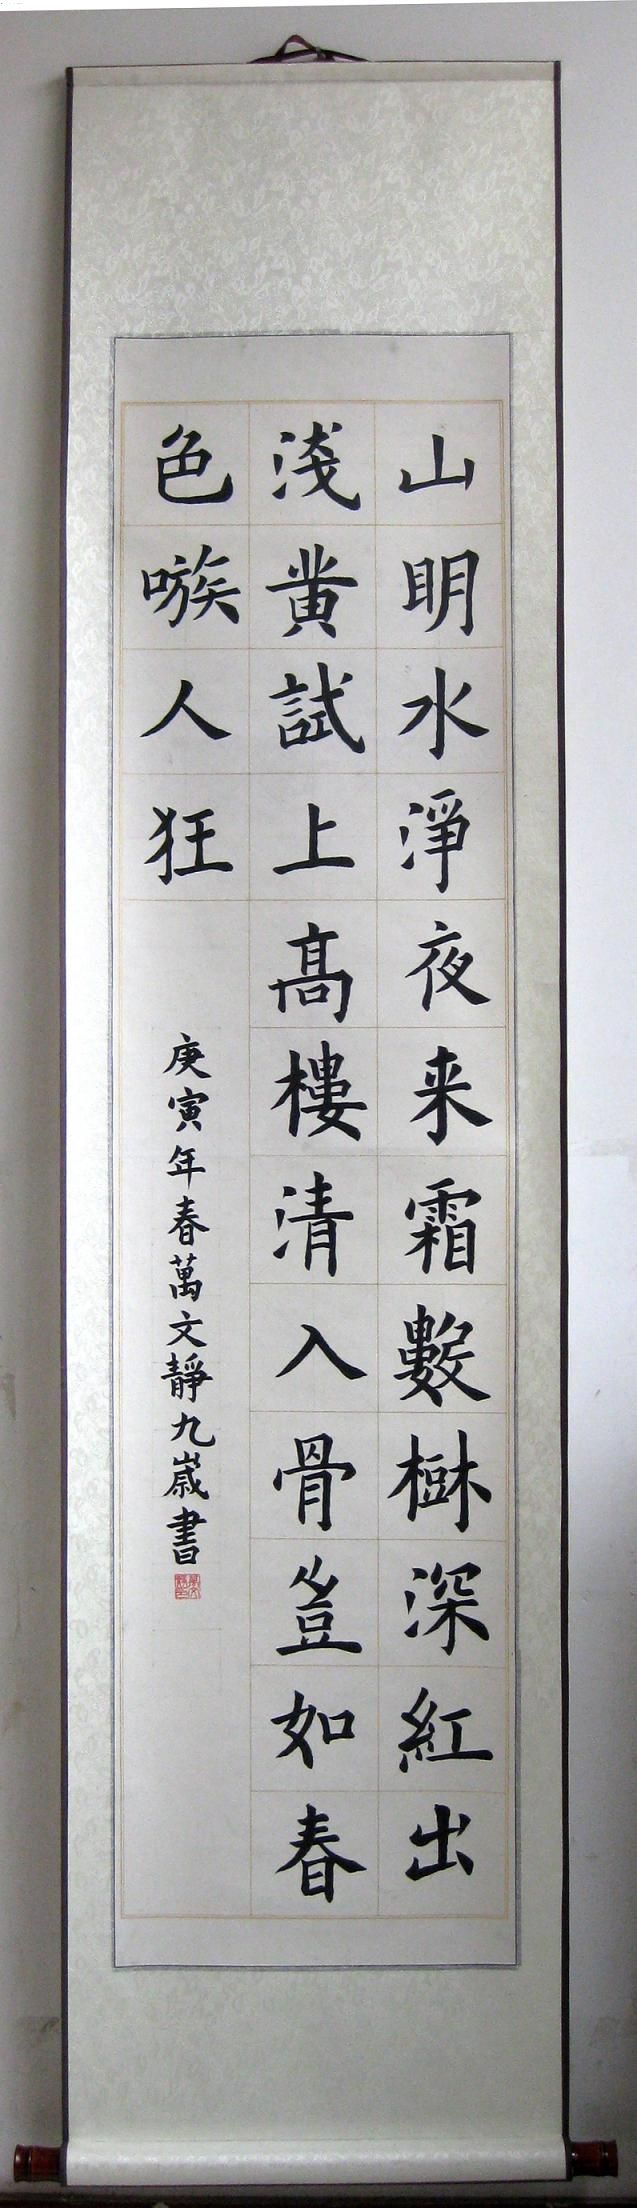 山明水淨夜来霜數樹深紅出
淺黄試上高樓清入骨豈如春
色嗾人狂
庚寅年春萬文靜九歲書